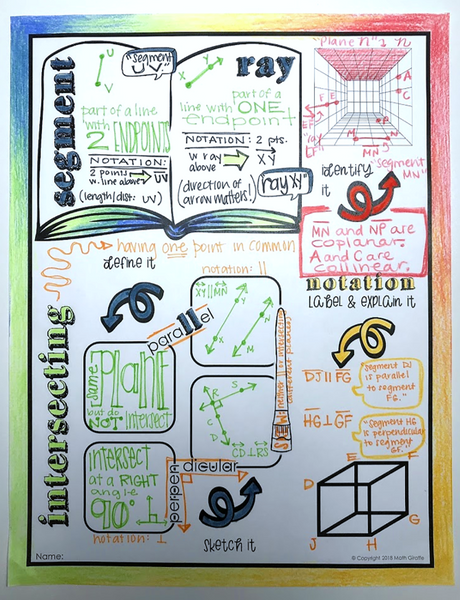 segment
U
V
"segment UV"
part of a line
with
2 ENDPOINTS
NOTATION:
2 points
w. line above
UV
(length/dist: UV)
X
Y
ray
part of a
line with ONE
endpoint
NOTATION: 2 pts.
w ray
above
XY
(direction of
arrow matters!)
"ray XY"
"Plane n"
A
C
E
F
"ray
M
N
P
MN
"segment
MN"
identify
it
MN and NP are
coplanar.
A and C are
collinear.
notation
label & explain it
intersecting
having one point in common
define it
parallel
notation: ||
XY || MN
Y
X
N
M
same
Plane
but do
NOT intersect
SKEW: neither || or intersecting
different planes
R
S
C
D
CD ⊥ RS
intersect
at a RIGHT
angle
90°
notation: ⊥
perpendicular
sketch it
DJ || FG
"segment DJ
is parallel
to segment
FG."
HG ⊥ GF
"segment HG
is perpendicular
to segment
GF."
E
F
D
G
J
H
Name:
© Copyright 2018 Math Giraffe